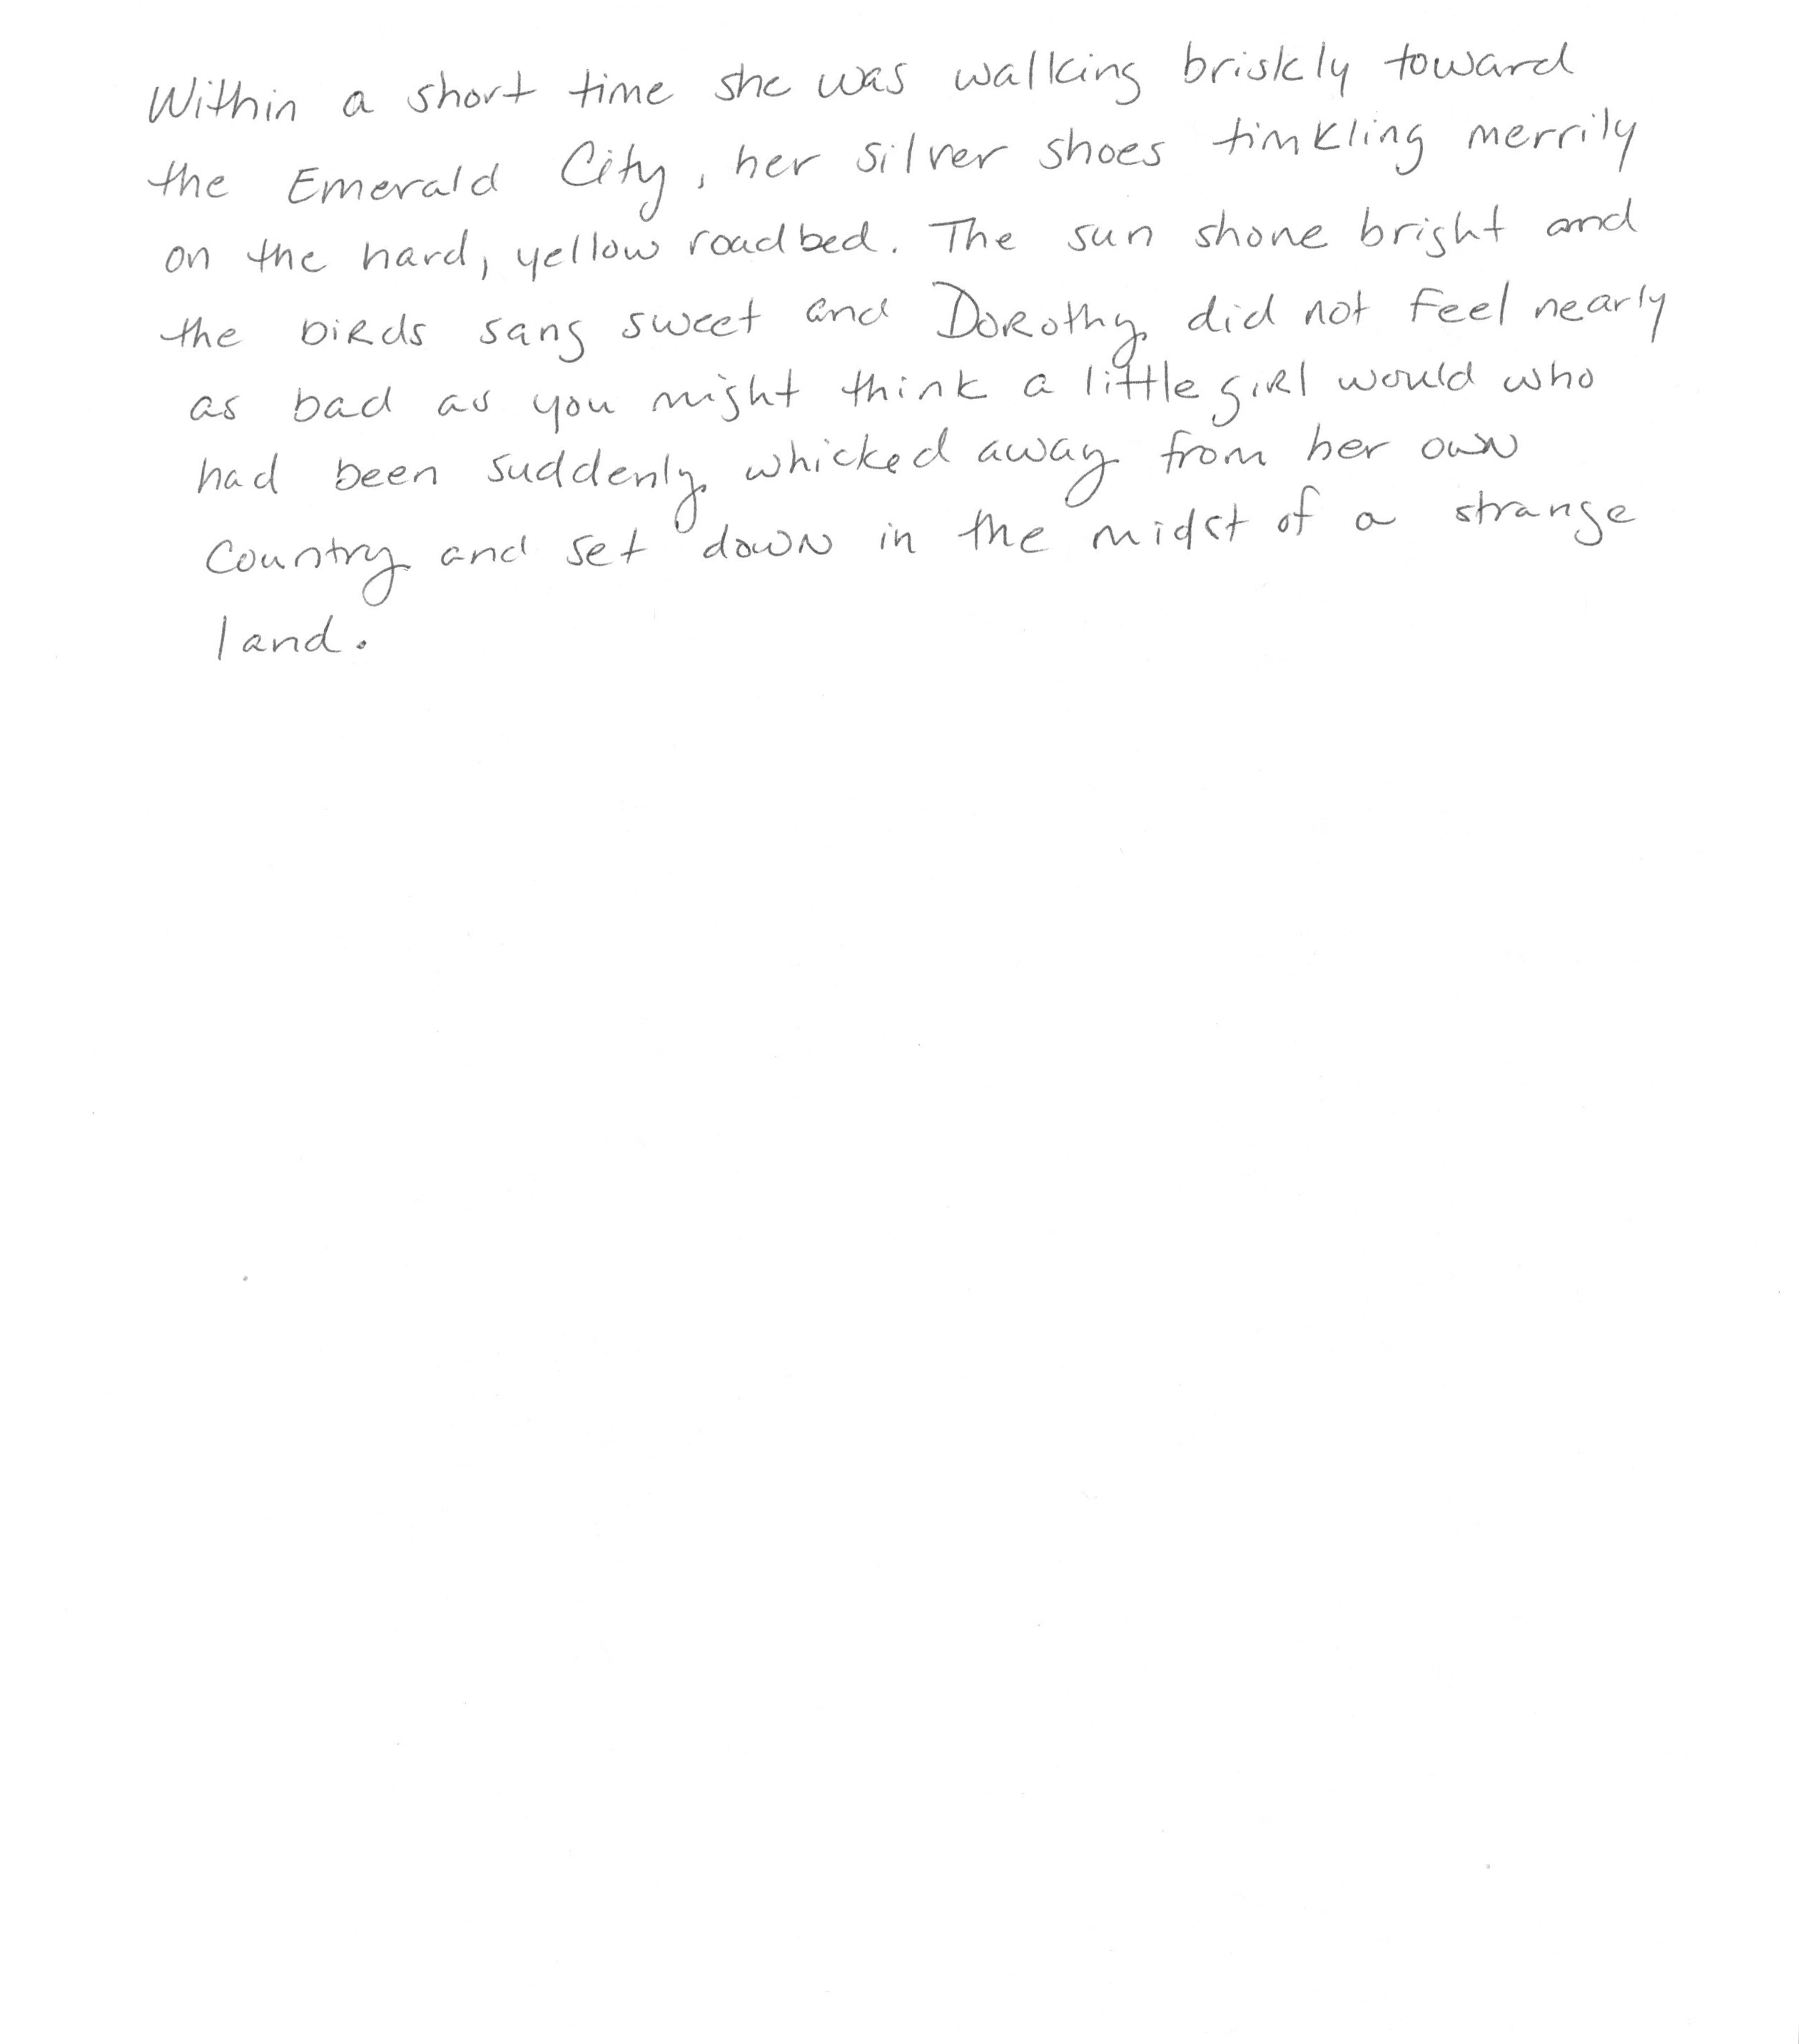 Within a short time she was walking briskly toward
the Emerald City, her silver shoes timkling merrily
on the hard, yellow roadbed. The sun shone bright and
the birds sang sweet and Dorothy did not feel nearly
as bad as you might think a little girl would who
had been suddenly whicked away from her own
Country and set down in the midst of a strange
land.